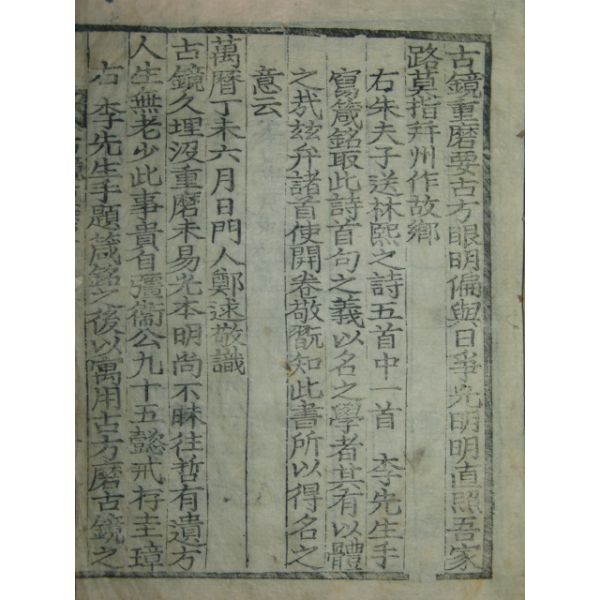 古鏡重磨要古方眼明偏與日爭光明明直照吾家
路莫指幷州作故鄕
右朱夫子送林熙之詩五首中一首 李先生手
寫箴銘取此詩首句之義以名之學者其有以體
之哉玆弁諸首使開卷敬翫知此書所以得名之
意云
萬曆丁未六月日門人鄭逑敬識
古鏡久埋沒重磨未易光本明尙不昧往哲有遺方
人生無老少此事貴自彊衞公九十五懿戒存圭璋
右 李先生手題箴銘之後以寓用古方磨古鏡之